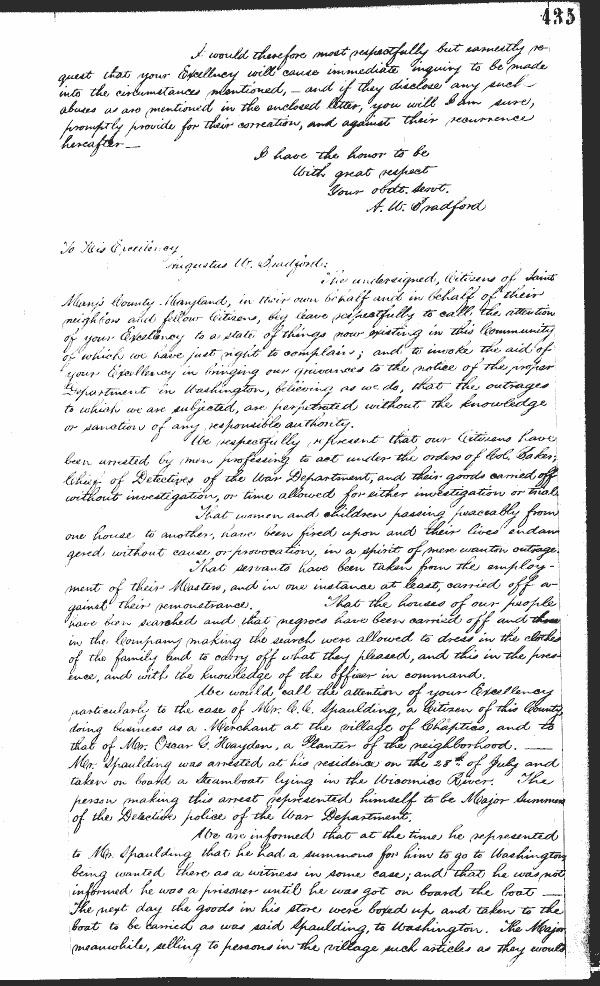 435
I would therefore most respectfully but earnestly re-
quest that your Excellency will cause immediate inquiry to be made
into the circumstances mentioned, — and if they disclose any such
abuses as are mentioned in the enclosed letter, you will I am sure,
promptly provide for their correction, and against their recurrence
hereafter —
I have the honor to be
With great respect
Your obdt. servt.
A. W. Bradford
To His Excellency
Augustus W. Bradford:
The undersigned, Citizens of Saint
Mary's County Maryland, in their own behalf and in behalf of their
neighbors and fellow Citizens, beg leave respectfully to call the attention
of your Excellency to a state of things now existing in this Community
of which we have just right to complain; and to invoke the aid of
your Excellency in bringing our grievances to the notice of the proper
Department in Washington, believing as we do, that the outrages
to which we are subjected, are perpetrated without the knowledge
or sanction of any responsible authority.
We respectfully represent that our Citizens have
been arrested by men professing to act under the orders of Col. Baker,
Chief of Detectives of the War Department, and their goods carried off
without investigation, or time allowed for either investigation or trial.
That women and children passing peaceably from
one house to another, have been fired upon and their lives endan
gered without cause or provocation, in a spirit of mere wanton outrage.
That servants have been taken from the employ-
ment of their Masters, and in one instance at least, carried off a-
gainst their remonstrance. That the houses of our people
have been searched and that negroes have been carried off and those
in the Company making the search were allowed to dress in the clothes
of the family and to carry off what they pleased, and this in the pres-
ence, and with the knowledge of the officer in command.
We would call the attention of your Excellency
particularly to the case of Mr. C. C. Spaulding, a Citizen of this County
doing business as a Merchant at the village of Chaptico, and to
that of Mr. Oscar G. Hayden, a Planter of the neighborhood. —
Mr. Spaulding was arrested at his residence on the 28th of July and
taken on board a Steamboat lying in the Wicomico River. The
person making this arrest represented himself to be Major Summers
of the Detective police of the War Department.
We are informed that at the time he represented
to Mr. Spaulding that he had a summons for him to go to Washington
being wanted there as a witness in some case; and that he was not
informed he was a prisoner until he was got on board the boat —
The next day the goods in his store were boxed up and taken to the
boat to be carried as was said Spaulding, to Washington. The Major
meanwhile, selling to persons in the village such articles as they would